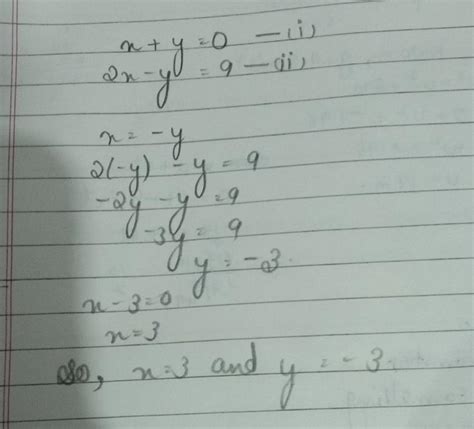 x + y = 0 — (i)
2x - y = 9 — (ii)
x = -y
2(-y) - y = 9
-2y - y = 9
-3y = 9
y = -3.
x - 3 = 0
x = 3
So, x = 3 and y = -3